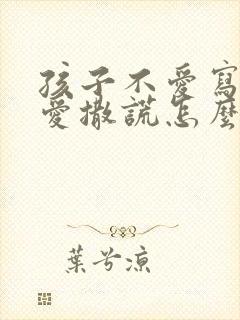 孩子不愛寫
愛撒謊怎麼
葉兮涼